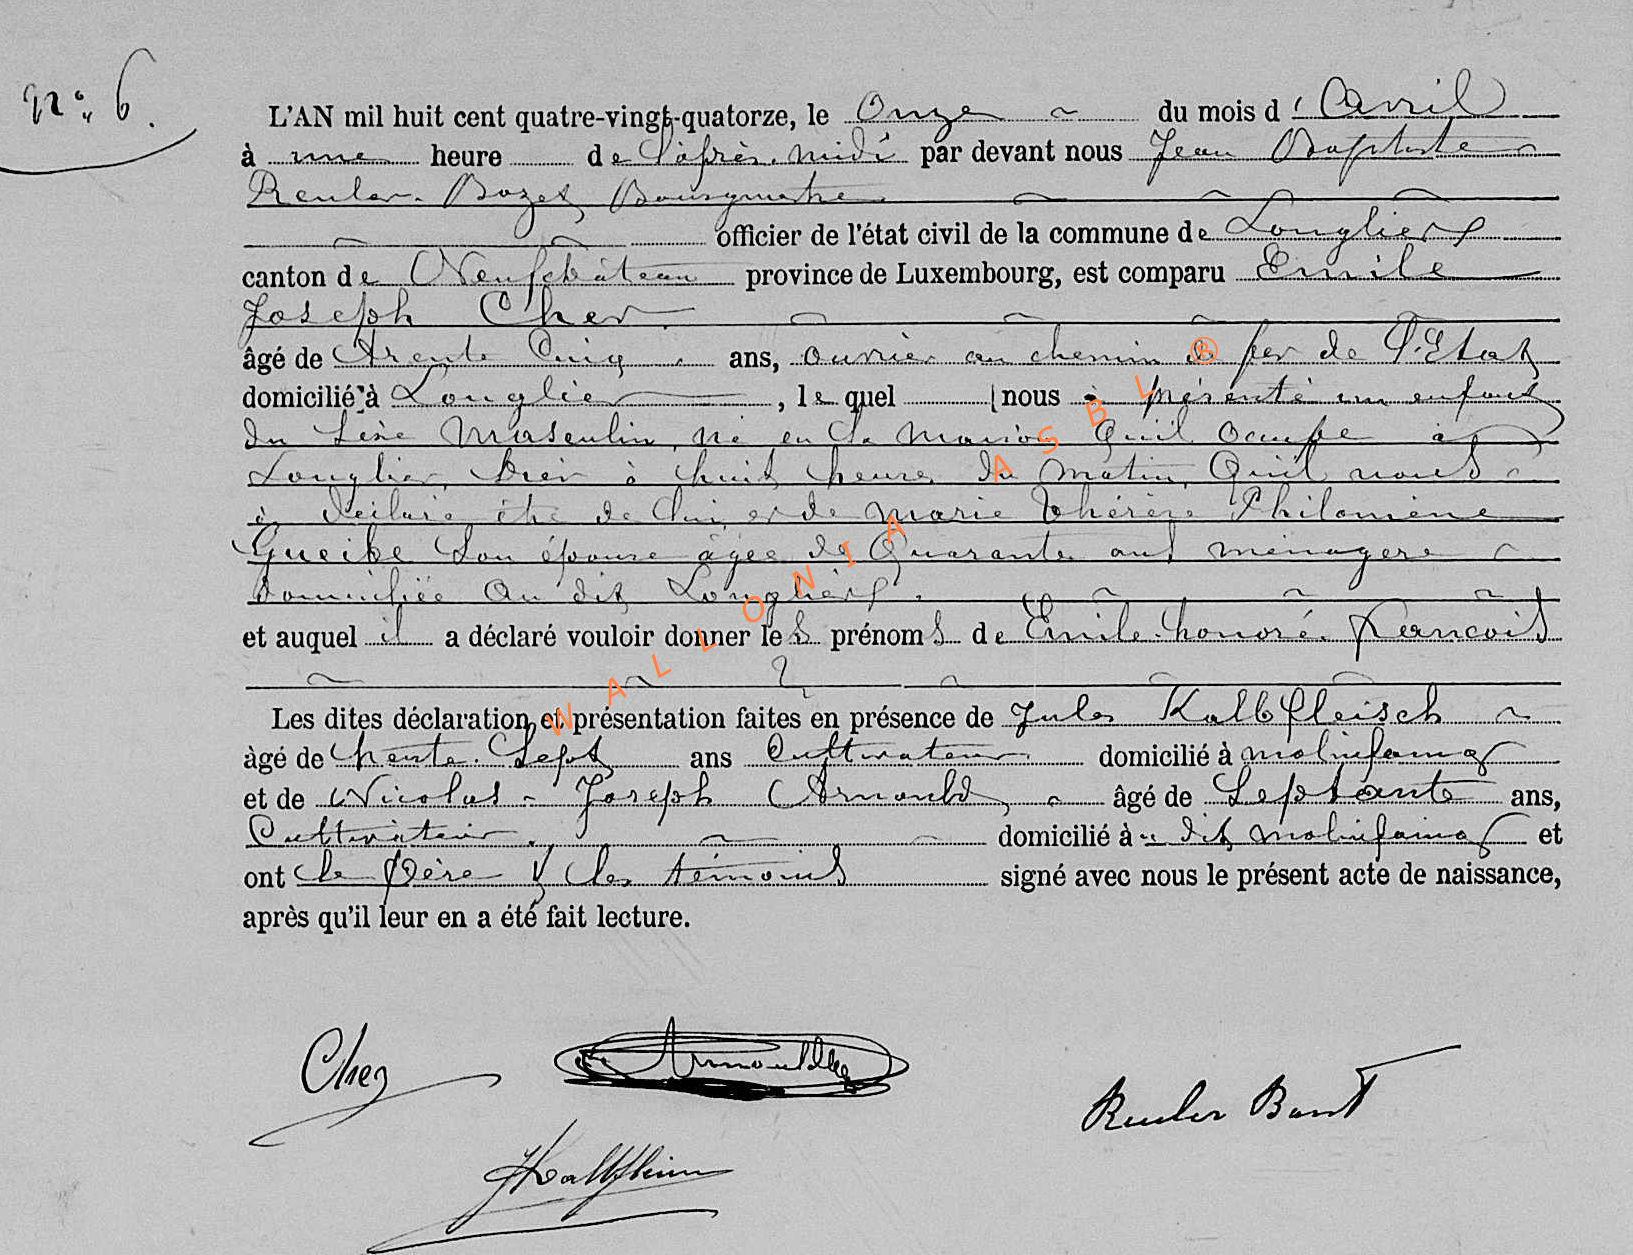 n° 6.
L'AN mil huit cent quatre-vingt-quatorze, le Onze du mois d'Avril
à une heure de l'après-midi par devant nous Jean Baptiste
Reuler-Bozet Bourgmestre
officier de l'état civil de la commune de Longlier
canton de Neufchâteau province de Luxembourg, est comparu Emile
Joseph Cher
âgé de trente Cinq ans, ouvrier au chemin de fer de l'Etat
domicilié à Longlier, lequel nous à présenté un enfant
du sexe Masculin né en la maison qu'il ocupe à
Longlier, hier à huit heure du matin, Qu'il nous
à déclaré être de lui, et de Marie Thérèse Philomène
Gueibe son épouse âgée de Quarante ans ménagère
domiciliée au dit Longlier.
et auquel il a déclaré vouloir donner les prénoms de Emile-honoré-François
Les dites déclaration et présentation faites en présence de Jules Kalbfleisch
âgé de trente-Sept ans Cultivateur domicilié à molinfaing
et de Nicolas-Joseph Arnould, âgé de Septante ans,
Cultivateur domicilié à u dit molinfaing et
ont le père & les témoins signé avec nous le présent acte de naissance,
après qu'il leur en a été fait lecture.
WALLONIA ASBL ®
Cher
Arnould
Reuler
JKalbfleisch